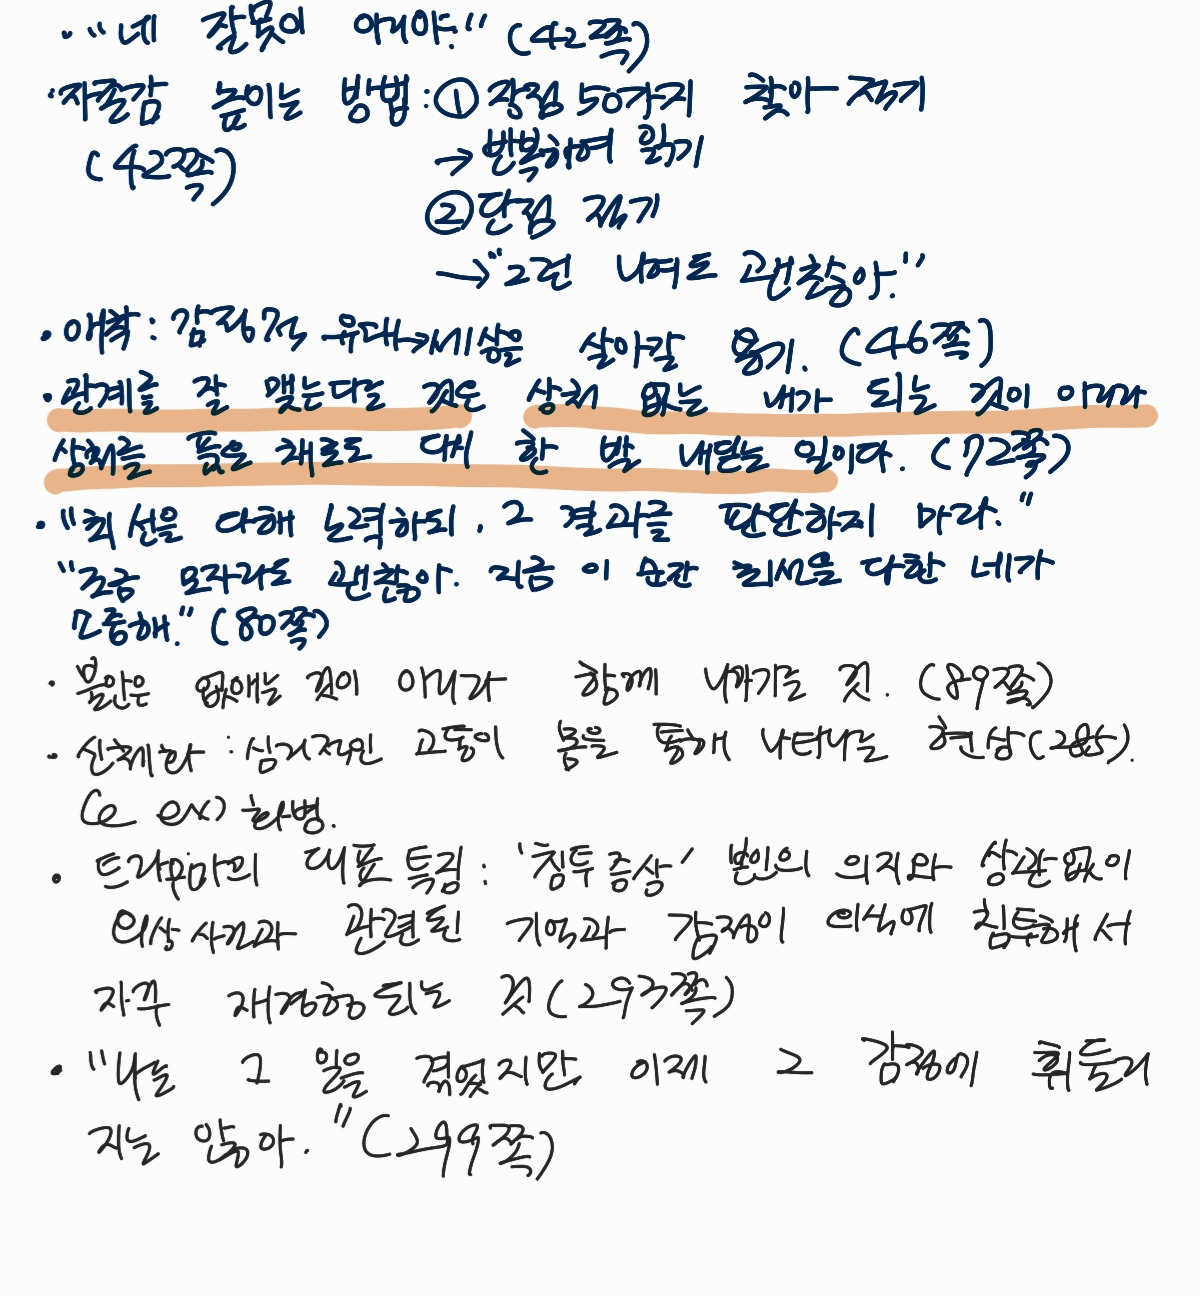 · "네 잘못이 아니야." (42쪽)
· 자존감 높이는 방법 : ① 장점 50가지 찾아 적기
(42쪽) → 반복하여 읽기
② 단점 적기
→ "그런 나여도 괜찮아."
· 애착 : 감정적 유대→세상을 살아갈 용기. (46쪽)
· 관계를 잘 맺는다는 것은 상처 없는 내가 되는 것이 아니라
상처를 품은 채로도 다시 한 발 내딛는 일이다. (72쪽)
· "최선을 다해 노력하되, 그 결과를 판단하지 마라."
"조금 모자라도 괜찮아. 지금 이 순간 최선을 다한 네가
소중해." (80쪽)
· 불안은 없애는 것이 아니라 함께 나아가는 것. (89쪽)
· 신체화 : 심리적인 고통이 몸을 통해 나타나는 현상(285).
(e ex) 화병.
· 트라우마의 대표 특징 : '침투 증상' 본인의 의지와 상관없이
외상 사건과 관련된 기억과 감정이 의식에 침투해서
자꾸 재경험되는 것 (293쪽)
· "나는 그 일을 겪었지만 이제 그 감정에 휘둘리
지는 않아." (299쪽)